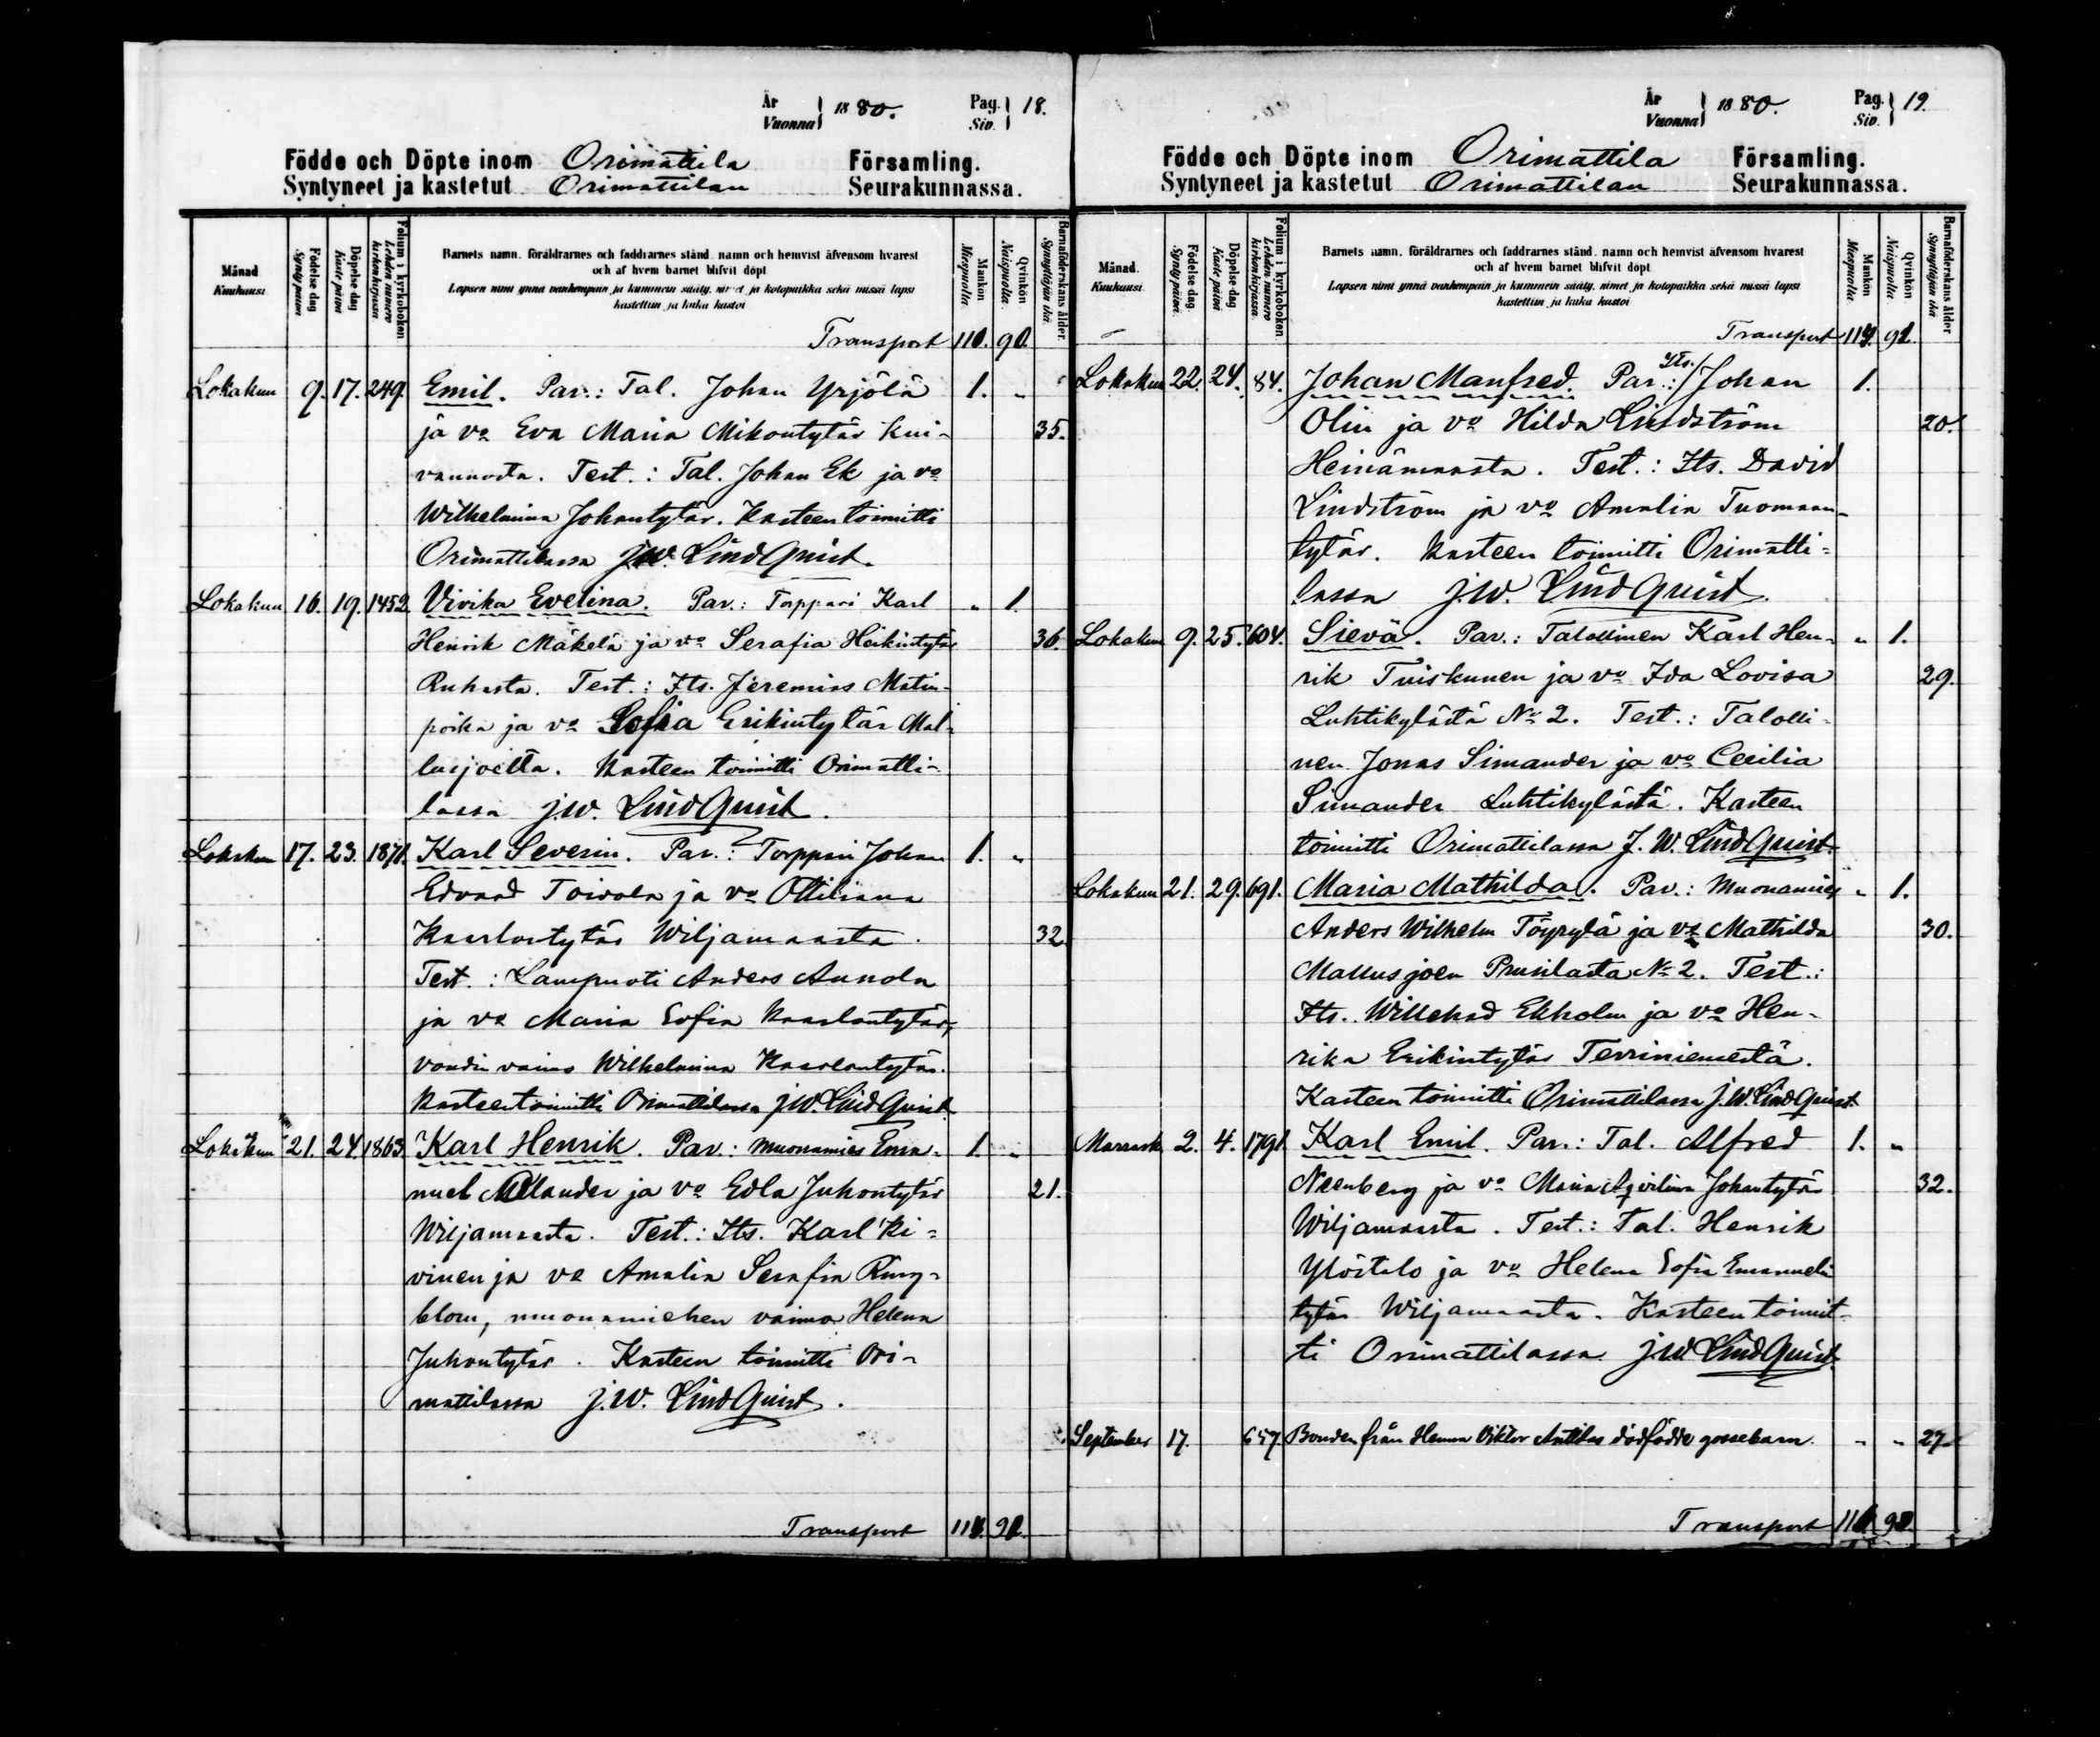 År
Vuonna 1880.
Pag.
Siv. 18.
Födde och Döpte inom Orimattila Församling.
Syntyneet ja kastetut Orimattilan Seurakunnassa.
Månad
Kuukausi
Födelse dag
Synty päivä
Döpelse dag
Kaste päivä
Folium i kyrkoboken
Lehden numero kirkonkirjassa
Barnets namn, föräldrarnes och faddrarnes stånd, namn och hemvist äfvensom hvarest
och af hvem barnet blifvit döpt
Lapsen nimi ynnä vanhempain ja kummein sääty, nimet ja kotopaikka sekä missä lapsi
kastettiin ja kuka kastoi
Mankön
Miespuolia
Qvinkön
Naispuolia
Barnaföderskans ålder.
Synnyttäjän ikä
Transport 110. 90.
Lokakuu 9. 17. 249. Emil. Par.: Tal. Johan Yrjölä 1. "
ja vo Eva Maria Mikontytär Kui- 35.
vannosta. Test.: Tal. Johan Ek ja vo
Wilhelmina Johantytär. Kasteen toimitti
Orimattilassa J.W. LindQuist.
Lokakuu 16. 19. 1452. Vivika Evelina. Par.: Torppari Karl " 1.
Henrik Mäkelä ja vo Serafia Heikintytär 36.
Ruhasta. Test.: Its. Jeremias Matin-
poika ja vo Sofia Erikintytär Mal-
lusjoelta. Kasteen toimitti Orimatti-
lassa J.W. LindQuist.
Lokakuu 17. 23. 1871. Karl Severin. Par.: Torppari Johan 1. "
Edvard Toivola ja vo Ottiliana
Kaarlontytär Wiljamaasta. 32
Test.: Lampuoti Anders Annola
ja vo Maria Sofia Kaarlontytär,
voudin vaimo Wilhelmina Kaarlontytär.
Kasteen toimitti Orimattilassa J.W. LindQuist
Lokakuu 21. 24. 1863. Karl Henrik. Par.: muonamies Ema- 1. "
nuel Melander ja vo Edla Juhontytär 21.
Wiljamaasta. Test.: Its. Karl Ki-
vinen ja vo Amalia Serafia Ring-
blom, muonamiehen vaimo Helena
Juhontytär. Kasteen toimitti Ori-
mattilassa J.W. LindQuist.
Transport
År
Vuonna 1880.
Pag.
Siv. 19.
Födde och Döpte inom Orimattila Församling.
Syntyneet ja kastetut Orimattilan Seurakunnassa.
Månad.
Kuukausi.
Födelse dag.
Synty päivä.
Döpelse dag
Kaste päivä
Folium i kyrkoboken
Lehden numero kirkonkirjassa.
Barnets namn, föräldrarnes och faddrarnes stånd, namn och hemvist äfvensom hvarest
och af hvem barnet blifvit döpt
Lapsen nimi ynnä vanhempain ja kummein sääty, nimet ja kotopaikka sekä missä lapsi
kastettiin ja kuka kastoi
Mankön
Miespuolia
Qvinkön
Naispuolia
Barnaföderskans ålder
Synnyttäjän ikä
Transport
Its.
Lokakuu 22. 24. 84. Johan Manfred. Par.: Johan 1.
Olin ja vo Hilda Lindström 20.
Heinämaasta. Test.: Its. David
Lindström ja vo Amalia Tuomaan-
tytär. Kasteen toimitti Orimatti-
lassa J.W. LindQuist.
Lokakuu 9. 25. 604. Sievä. Par.: Talollinen Karl Hen- " 1.
rik Tuiskunen ja vo Ida Lovisa 29.
Luhtikylästä No 2. Test.: Talolli-
nen Jonas Simander ja vo Cecilia
Simander Luhtikylästä. Kasteen
toimitti Orimattilassa J.W. LindQuist.
Lokakuu 21. 29. 691. Maria Mathilda. Par.: Muonamies " 1.
Anders Wilhelm Töyrylä ja vo Mathilda 30.
Mallusjoen Prusilasta No 2. Test.:
Its. Willehad Ekholm ja vo Hen-
rika Erikintytär Terriniemestä.
Kasteen toimitti Orimattilassa J.W. LindQuist.
Marrask 2. 4. 1791. Karl Emil. Par.: Tal. Alfred 1. "
Neenberg ja vo Maria Aqvilina Johantytär 32.
Wiljamaasta. Test.: Tal. Henrik
Ylöstalo ja vo Helena Sofia Emanuelin
tytär Wiljamaasta. Kasteen toimit-
ti Orimattilassa J.W. LindQuist.
September 17. 657 Bonden från Henna Viktor Anttilas dödfödde gossebarn. " " 27
Transport